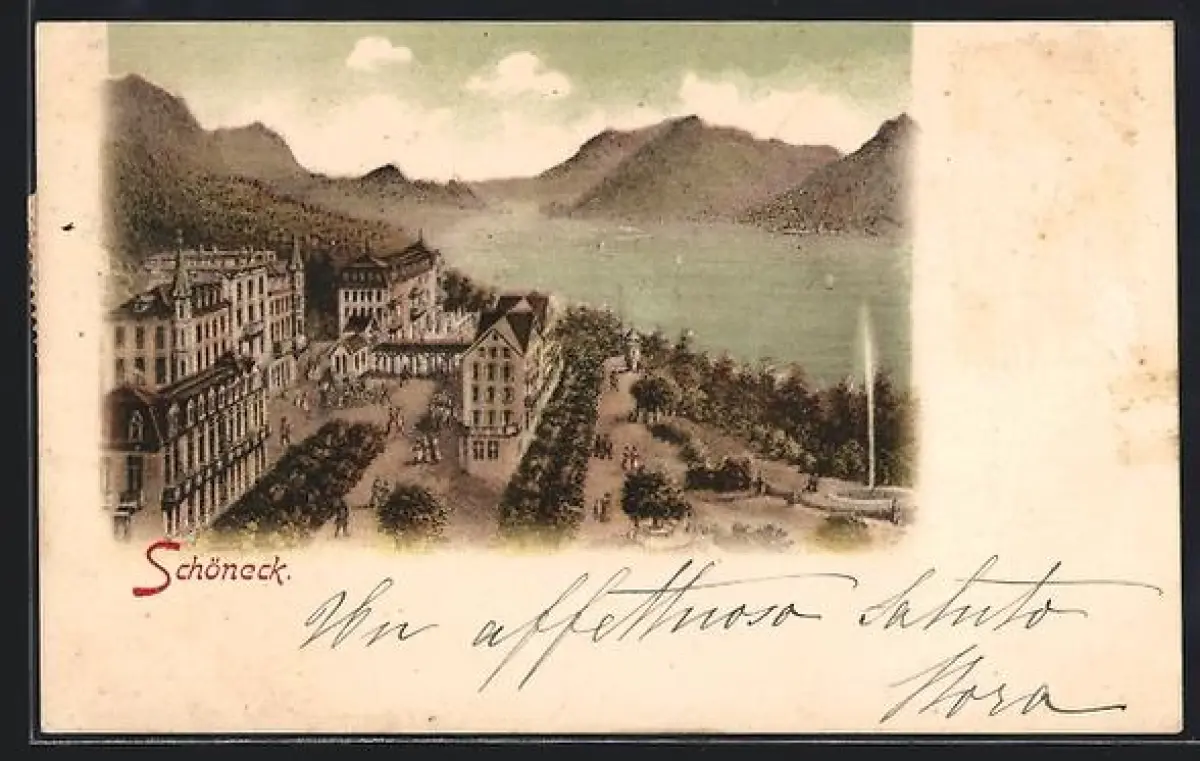 Schöneck.
Un affettuoso saluto
Nora